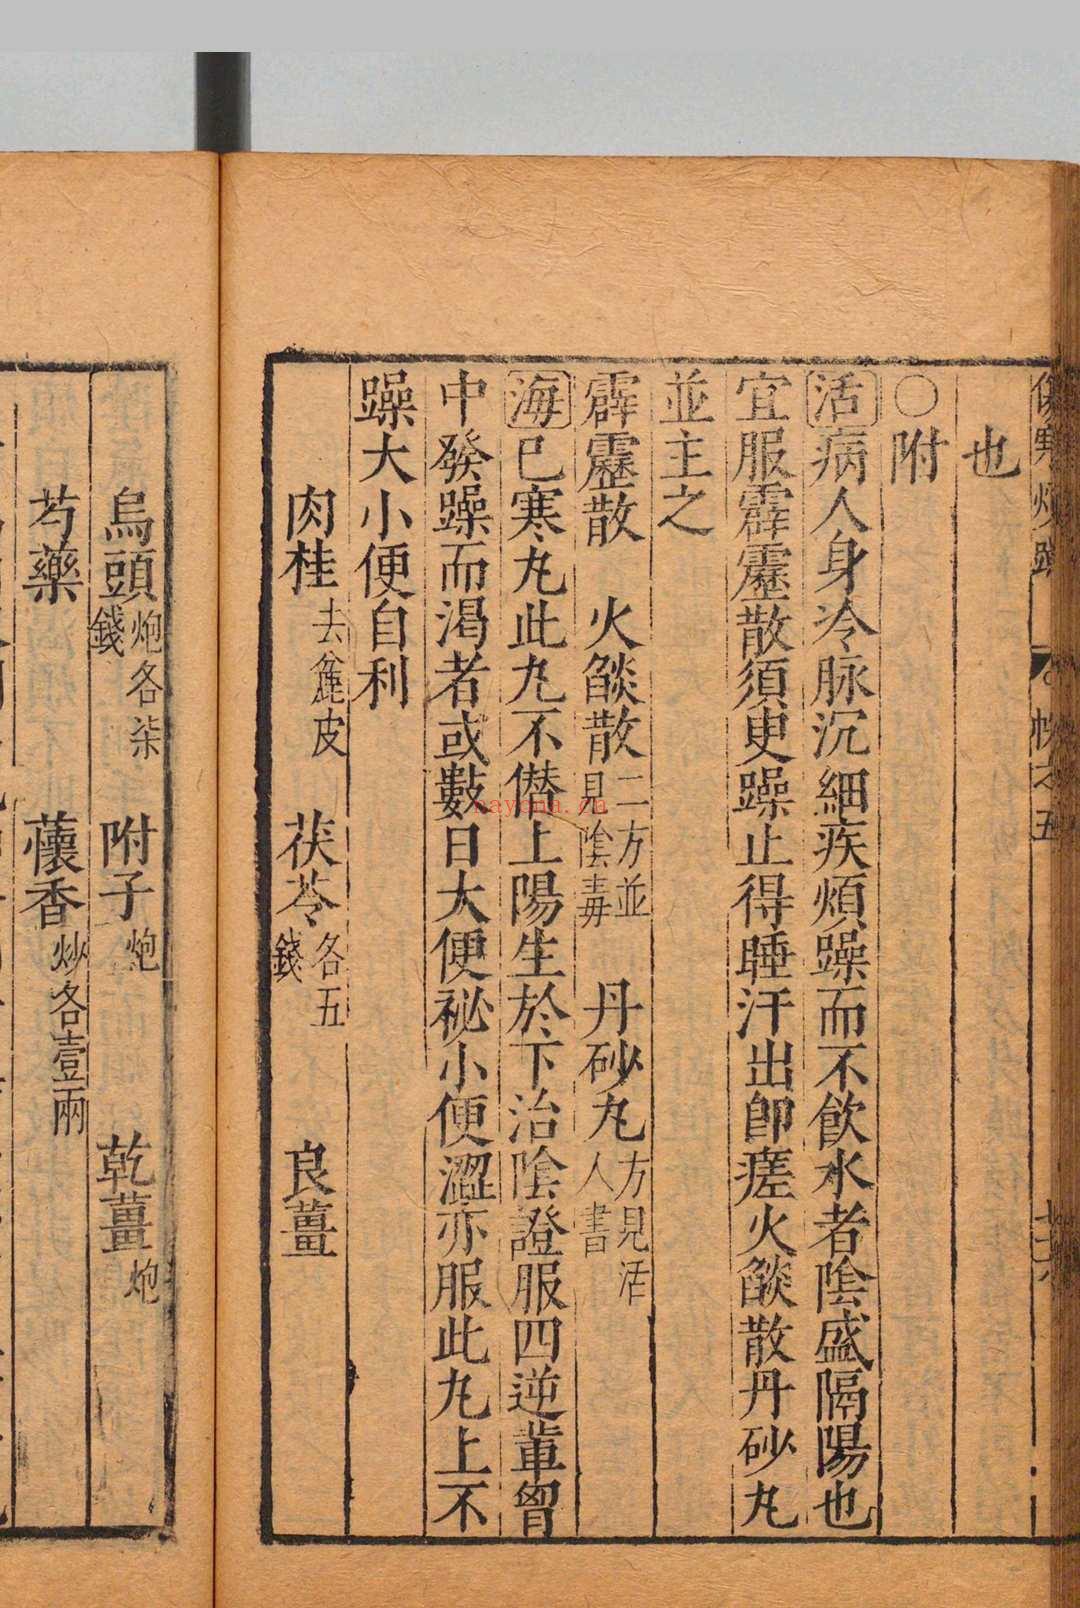 也
○附
活病人身冷脉沉細疾煩躁而不飲水者陰盛隔陽也
宜服霹靂散須臾躁止得睡汗出卽瘥火焰散丹砂丸
並主之
霹靂散　火焰散二方並見陰毒　丹砂丸方見活人書
海已寒丸此丸不僭上陽生於下治陰證服四逆輩胷
中發躁而渴者或數日大便祕小便澀亦服此丸上不
躁大小便自利
肉桂去麄皮　茯苓各五錢　良薑
烏頭炮各柒錢　附子炮　乾薑炮
芍藥　蘹香炒各壹兩
nayona.cn